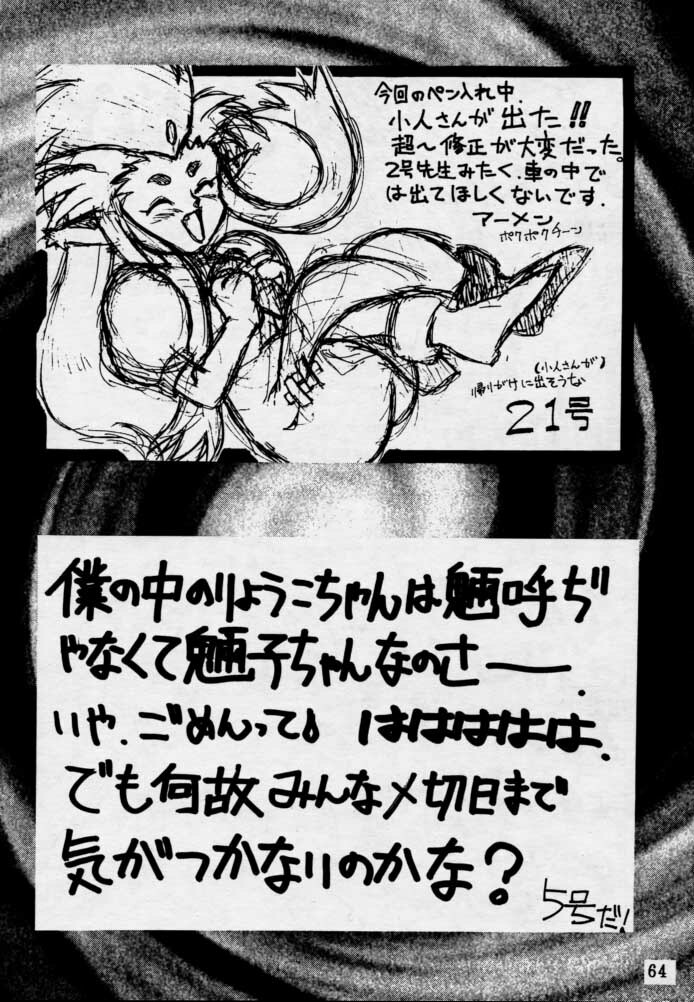 今回のペン入れ中、
小人さんが出た!!
超～修正が大変だった。
2号先生みたく、車の中で
は出てほしくないです。
アーメン
ポクポクチーン
(小人さんが)
帰りがけに出そうな
21号
僕の中のりょうこちゃんは魎呼ぢ
ゃなくて魎子ちゃんなのさー。
いや、ごめんって♪ はははははは。
でも何故みんな〆切日まで
気がつかないのかな?
5号だ!
64